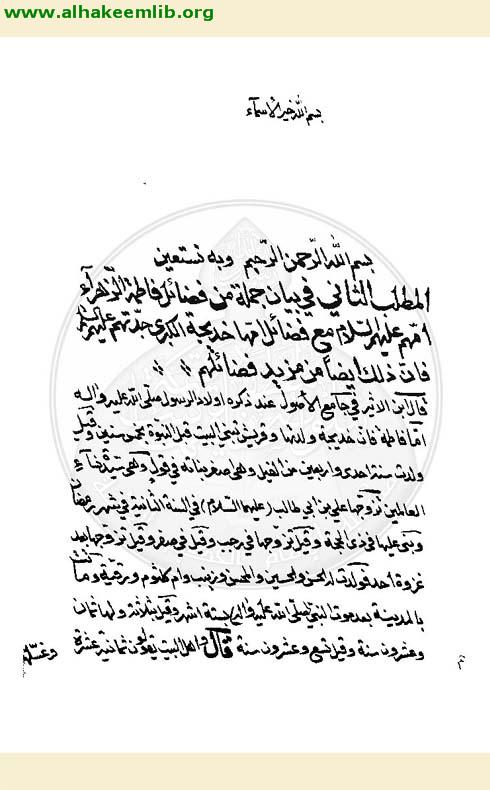 www.alhakeemlib.org
بسم الله خير الأسماء
بسم الله الرحمن الرحيم وبه نستعين
المطلب الثاني في بيان جملة من فضائل فاطمة الزهراء
امهم عليهم السلام مع فضائل امها خديجة الكبرى جدتهم عليهم السلام
فان ذلك ايضا من مزيد فضائلهم
قال ابن الاثير في جامع الأصول عند ذكره اولاد الرسول صلى الله عليه وآله
اما فاطمة فان خديجة ولدتها وقريش تبني البيت قبل النبوة بخمس سنين وقيل
ولدت سنة احدى واربعين من الفيل وهي اصغر بناته في قول وهي سيدة نساء
العالمين تزوجها علي بن ابي طالب (عليهما السلام) في السنة الثانية في شهر رمضان
وبنى عليها في ذي الحجة وقيل تزوجها في رجب وقيل في صفر وقيل تزوجها بعد
غزوة احد فولدت له الحسن والحسين والمحسن وزينب وام كلثوم ورقية وماتت
بالمدينة بعد موت النبي صلى الله عليه وآله بستة اشهر وقيل بثلاثة ولها ثمان
وعشرون سنة وقيل تسع وعشرون سنة قال واهل البيت يقولون ثمانية عشرة
وغسلها